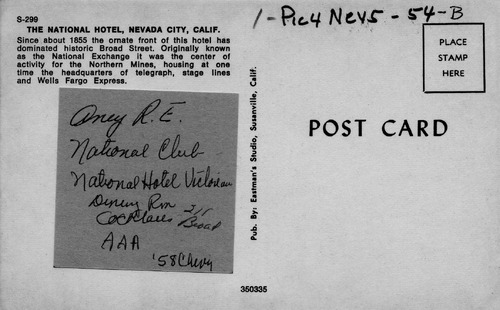 S-299
THE NATIONAL HOTEL, NEVADA CITY, CALIF.
Since about 1855 the ornate front of this hotel has
dominated historic Broad Street. Originally known
as the National Exchange it was the center of
activity for the Northern Mines, housing at one
time the headquarters of telegraph, stage lines
and Wells Fargo Express.
1-Pic4 Nev5-54-B
PLACE
STAMP
HERE
POST CARD
Pub. By: Eastman's Studio, Susanville, Calif.
R.E.
National Club
National Hotel Victorian
Dining Rm
Cocktails 211
Broad
AAA
'58 Chevy
350335